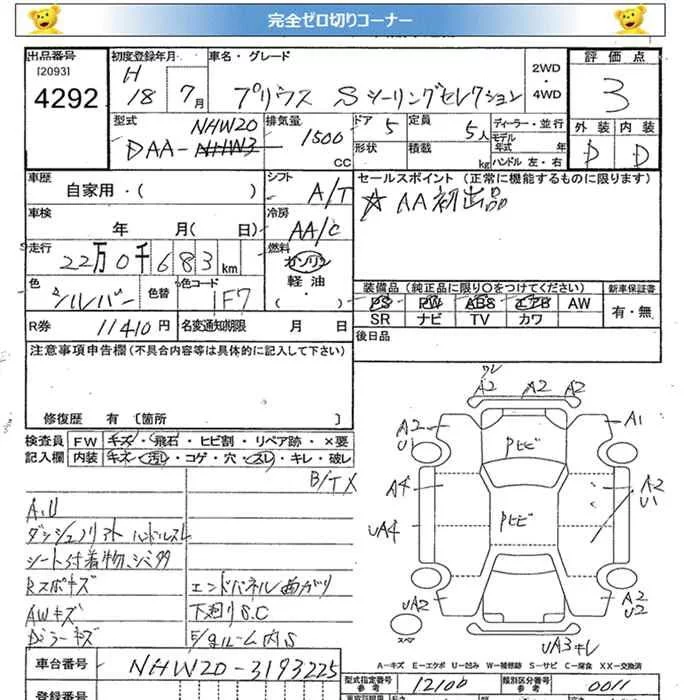 完全ゼロ切りコーナー
出品番号 [2093] 4292
初度登録年月 H 18 7月
車名・グレード プリウス Sツーリングセレクション
2WD ・ 4WD
評価点 3
外装 内装 D D
型式 DAA- NHW20
排気量 1500 CC
ドア 5 形状
定員 5人 積載 kg
ディーラー・並行
モデル年式 年
ハンドル 左・右
車歴 自家用・( )
シフト A/T
セールスポイント (正常に機能するものに限ります)
☆AA初出品
車検 年 月( 日)
冷房 AA/C
走行 22万0千683km
燃料 ガソリン 軽油・ ( )
色 シルバー 色替 色コード 1F7
装備品 (純正品に限り○をつけてください)
新車保証書 有・無
PS PW ABS エアB AW
SR ナビ TV カワ
R券 11410円 名変通知期限 月 日
後日品
注意事項申告欄(不具合内容等は具体的に記入して下さい)
修復歴 有 [箇所 ]
検査員記入欄
FW キズ・飛石・ヒビ割・リペア跡・×要
内装 キズ・汚レ・コゲ・穴・スレ・キレ・破レ
B/TX
A,U
シート付着物、シミ多
Rスポキズ エンドパネル曲がり
AWキズ 下廻りS.C
Dミラーキズ E/gルーム内S
A2 A2 A2
A2 U1 A1
Pヒビ
A4 A2 U1
UA4 Pヒビ
UA2 A2 U2
スペア
UA3キレ
A-キズ E-エクボ U-凹み W-補修跡 S-サビ C-腐食 XX-交換済
車台番号 NHW20-3193225
型式指定番号 参考 12100
類別区分番号 参考 0011
登録番号